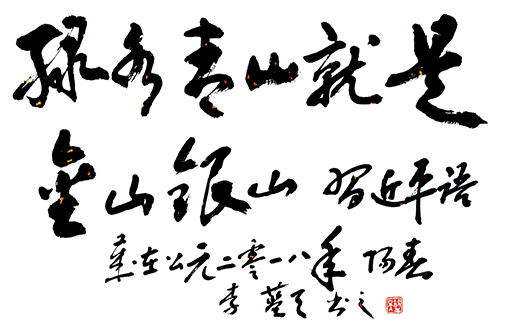 绿水青山就是
金山银山 習近平语
歲在公元二零一八年 阳春
李 书之